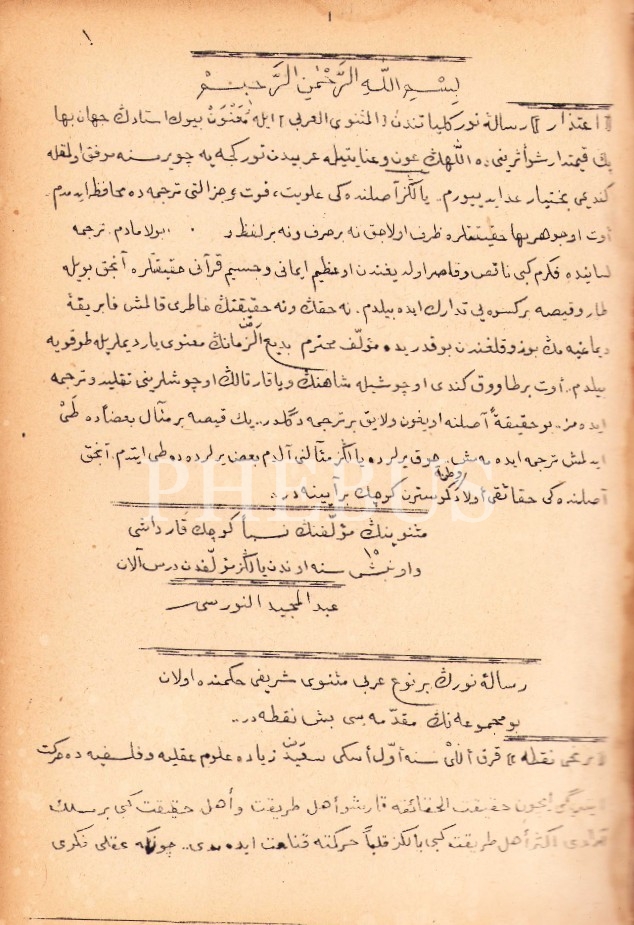 ١
١
بِسْمِ اللّٰهِ الرَّحْمٰنِ الرَّحِيمِ
﴿اعتذار﴾ رسالهٔ نور كلياتندن ﴿المثنوى العربى﴾ ايله مُعَنْوَنْ بيوك استادڭ جهان بها
پك قيمتدار شو اثرينى ده اللّٰهڭ عون و عنايتيله عربيدن توركجه يه چويرمه موفق اولمقله
كنديمى بختيار عد ايدييورم.. يالڭز اصلنده كى علويت، قوت و جزالتى ترجمه ده محافظه ايده مدم.
أوت او جوهر بها حقيقتلره ظرف اولاجق نه بر حرف و نه بر لفظ بولامادم. ترجمه
لسانيده فكرم كبى ناقص و قاصر اولديغندن او عظيم ايمانى و جسيم قرآنى حقيقتلره آنجق بويله
طار و قيصه بر كسوه يى تدارك ايده بيلدم. نه حقڭ و نه حقيقتڭ خاطرى قالمش فابريقهٔ
دماغيه مڭ بوزوقلغندن بو قدر يده مؤلّف محترم بديع الزّمانڭ معنوى يارديملريله طوقويه
بيلدم.. أوت بر طاووق كندى اوچوشيله شاهينڭ و يا قارتالڭ اوچوشلرينى تقليد و ترجمه
ايده مز.. بو حقيقةً اصلنه اويغون و لايق بر ترجمه دگلدر.. پك قيصه بر مثال بعضاً ده طَىّ
ايدلمش ترجمه ايده مه مش.. چوق يرلرده يالڭز مثالنى آلدم بعض يرلرده ده طى ايتدم. آنجق
اصلنده كى حقائقى أولاد وطنه كوسترن كوچك بر آيينه در..
مثنوينڭ مؤلّفنڭ نسباً كوچك قارداشى
و اونبش ١٥ سنه اوندن يالڭز مؤلّفدن درس آلان
عبد المجيد النورسى
رسالهٔ نورڭ بر نوع عربى مثنوى شريفى حكمنده اولان
بو مجموعه نڭ مقدّمه سى بش نقطه در..
﴿برنجى نقطه﴾ قرق اللى سنه أوّل أسكى سعيد زياده علوم عقليه و فلسفيه ده حركت
ايتديگى ايچون حقيقت الحقائقه قارشو أهل طريقت و أهل حقيقت كبى بر مسلك
آرادى اكثر أهل طريقت كبى يالڭز قلباً حركته قناعت ايده مدى.. چونكه عقلى فكرى
PHEBUS